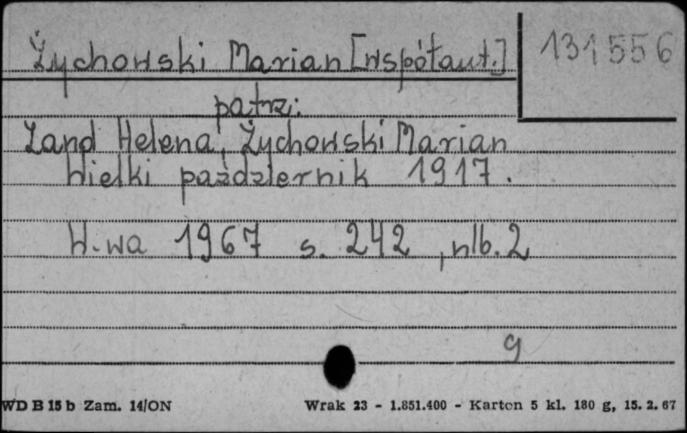 Żychowski Marian [współaut.]
131556
patrz:
Zand Helena, Żychowski Marian
Wielki październik 1917.
W-wa 1967 s. 242, nlb. 2
g
WD B 15 b Zam. 14/ON
Wrak 23 - 1.851.400 - Karton 5 kl. 180 g, 15. 2. 67